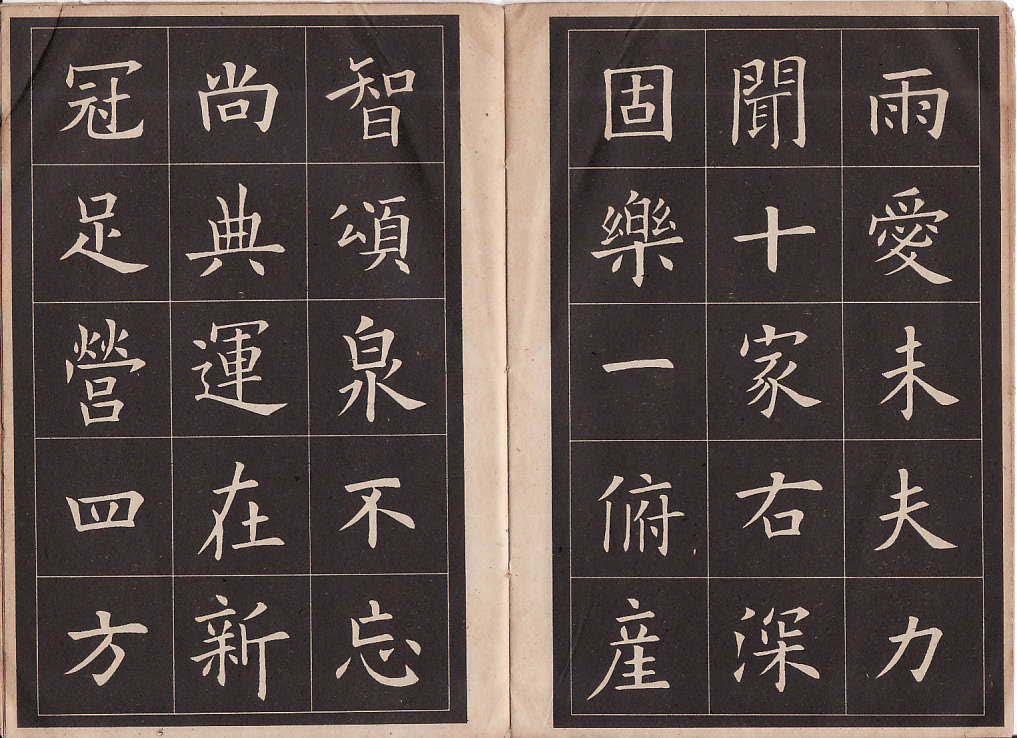 雨愛未夫力
聞十家右深
固樂一俯産
智頌泉不忘
尚典運在新
冠足營四方